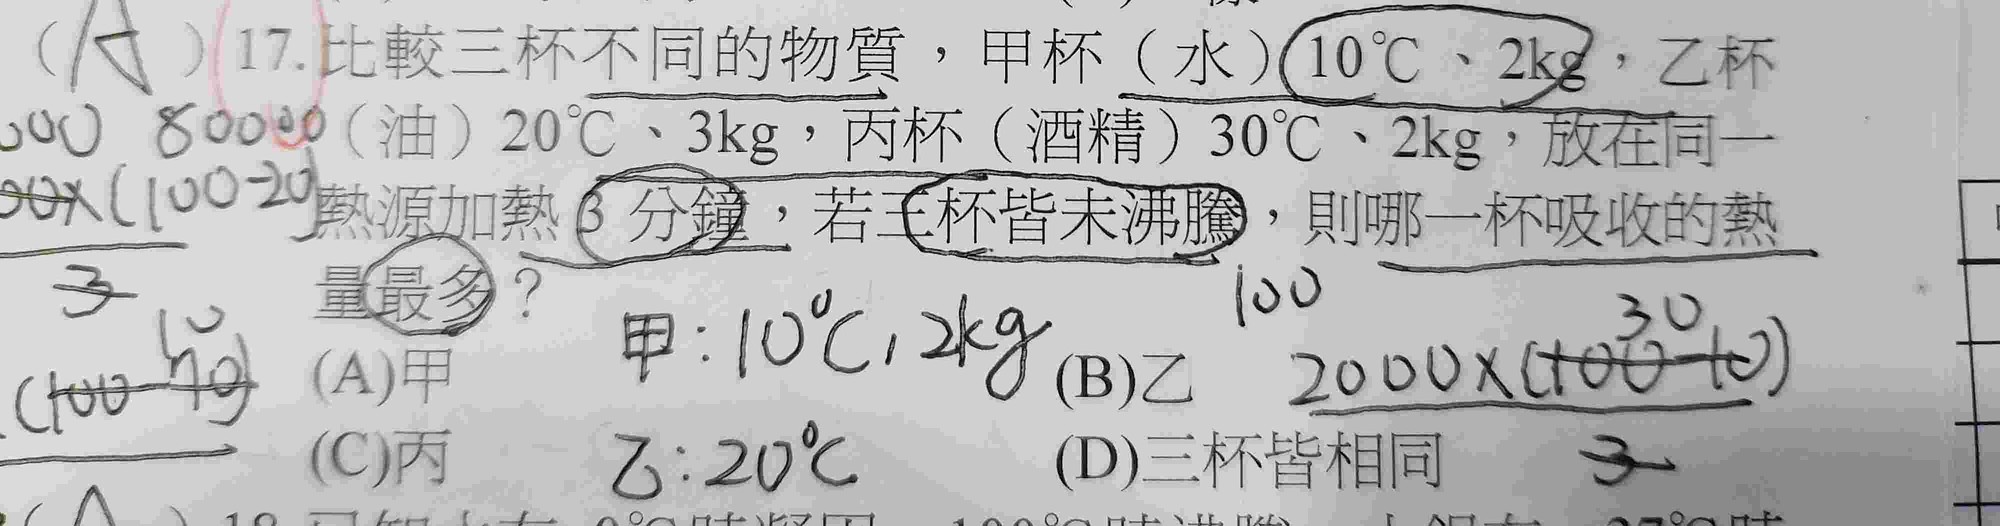 (A) 17. 比較三杯不同的物質，甲杯（水）10℃、2kg，乙杯
80000（油）20℃、3kg，丙杯（酒精）30℃、2kg，放在同一
x(100-20) 熱源加熱 3 分鐘，若三杯皆未沸騰，則哪一杯吸收的熱
3 量最多？ 100
10 30
(A)甲 甲:10℃,2kg (B)乙 2000x(100-10)
(C)丙 乙:20℃ (D)三杯皆相同 3